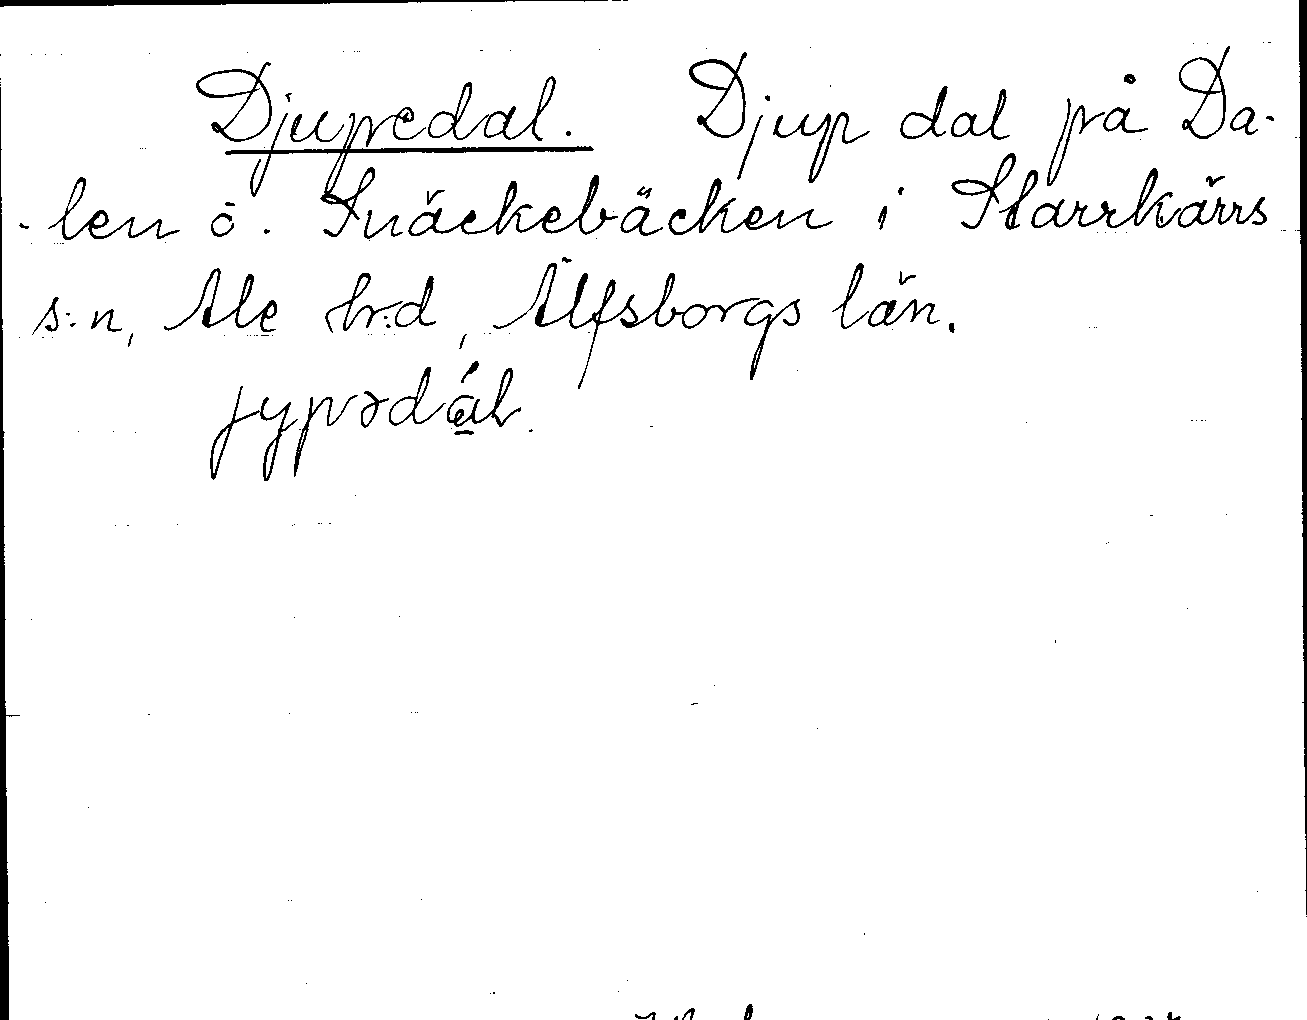 Djupedal. Djup dal på Da-
-len ö. Snäckebäcken i Starrkärrs
s:n, Ale hr:d, Älfsborgs län.
jypədáɫ.